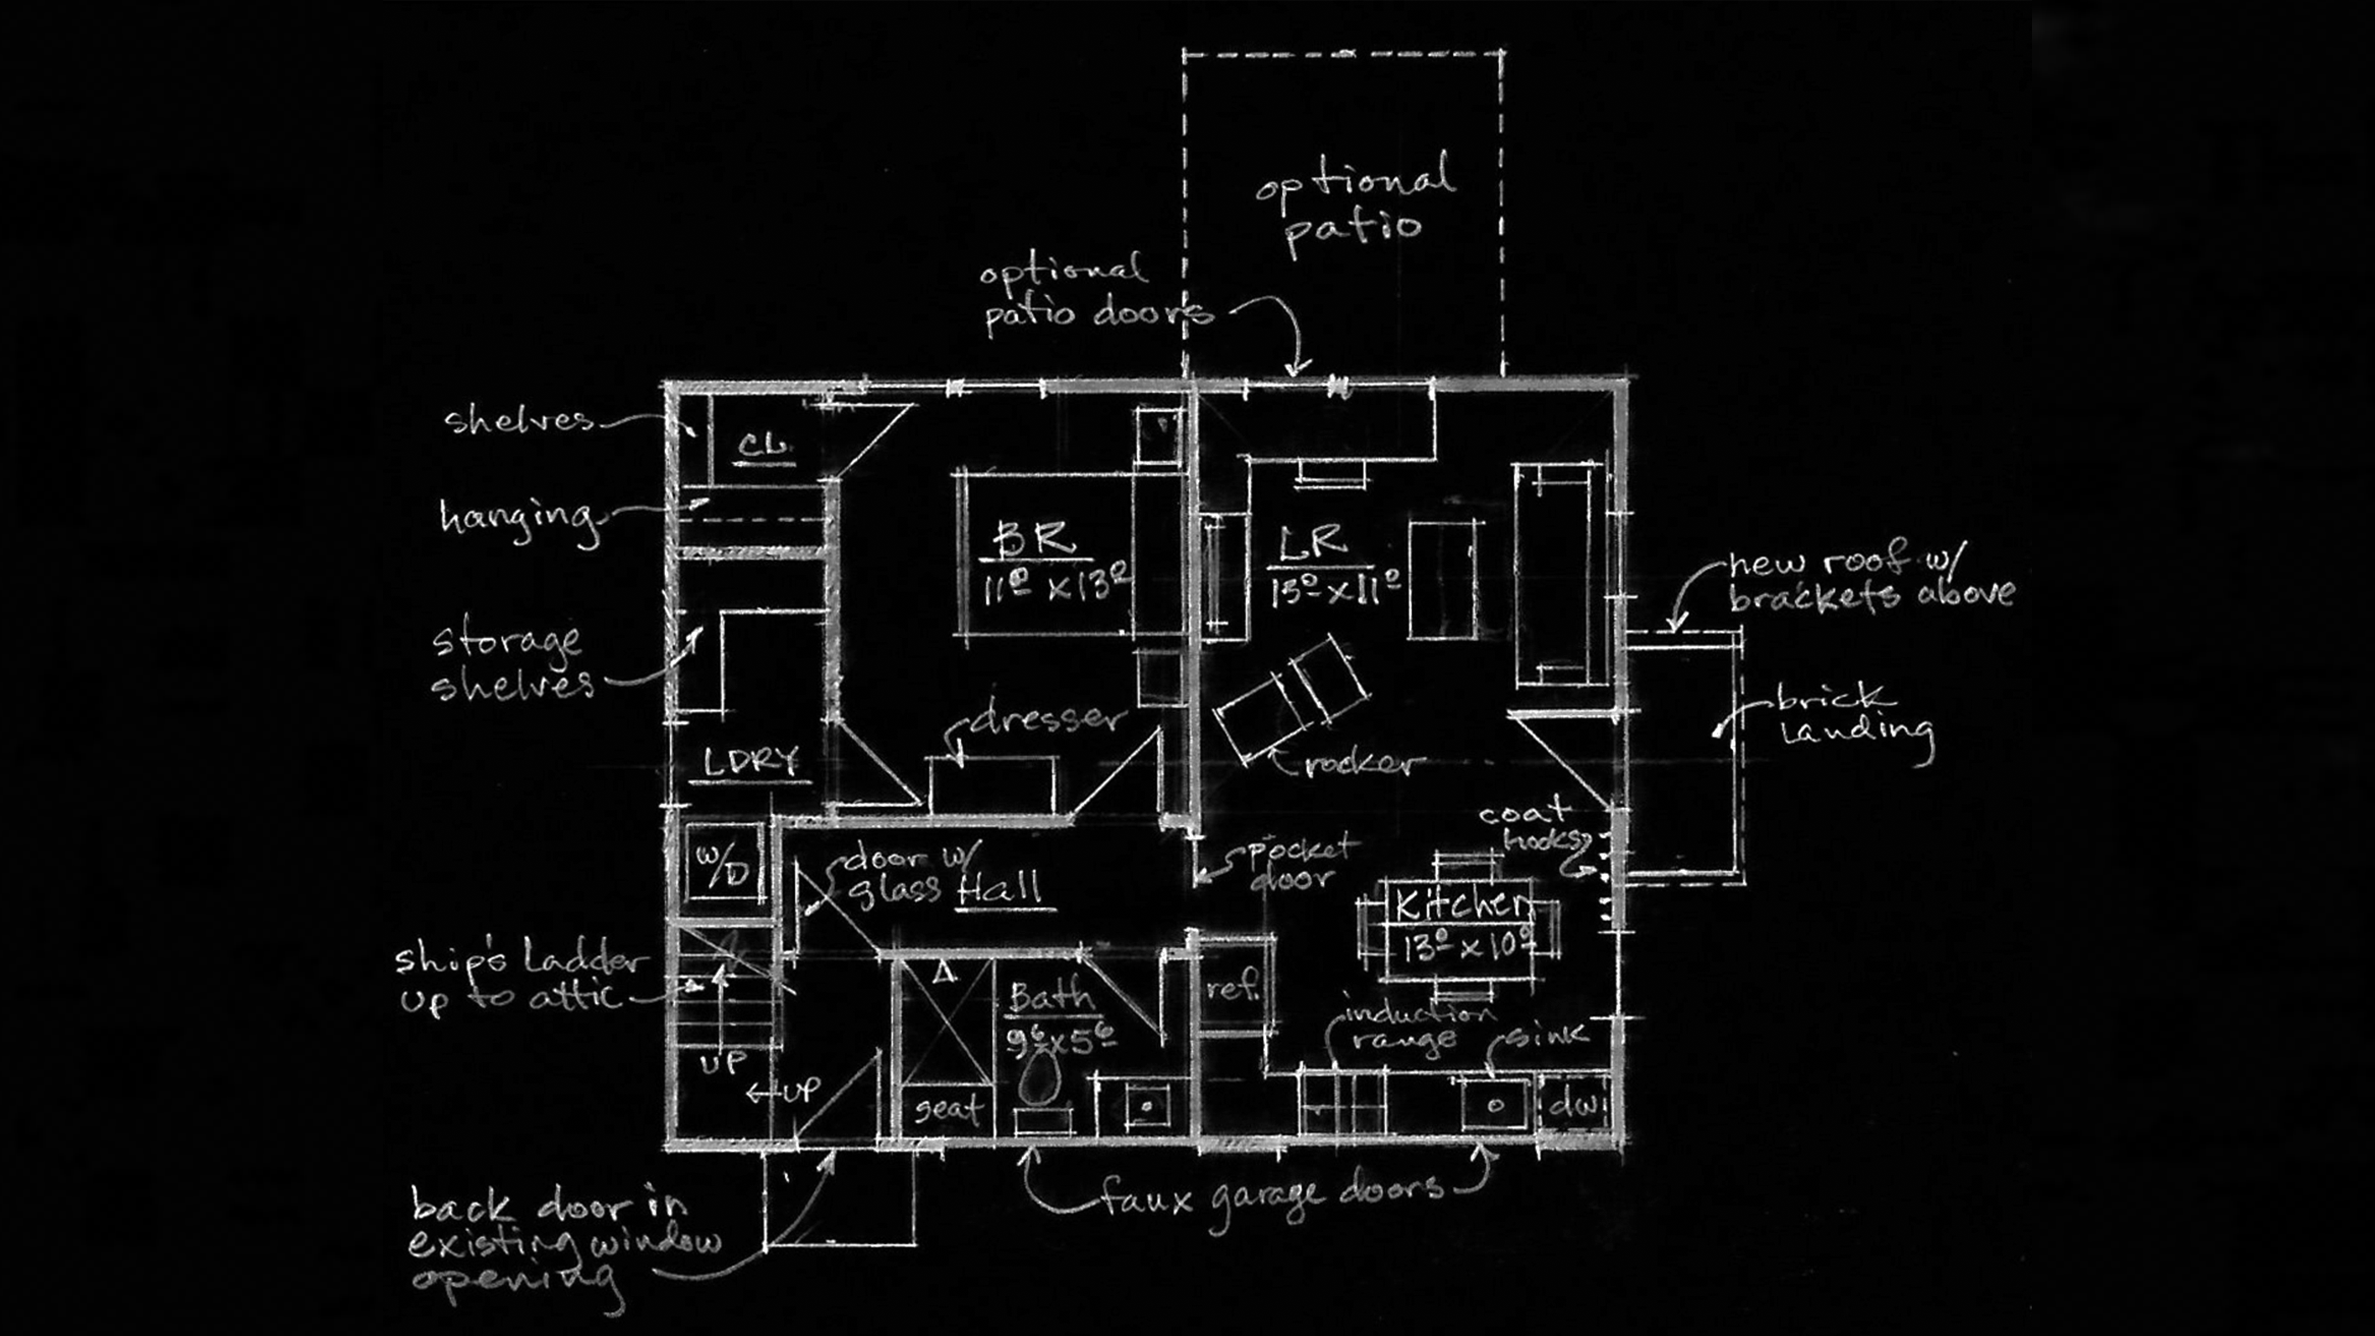 optional
patio
optional
patio doors
shelves
CL
hanging
BR
11⁰ x 13⁰
LR
15⁰ x 11⁰
new roof w/
brackets above
storage
shelves
dresser
brick
landing
LDRY
rocker
coat
hooks
W/D
door w/
glass Hall
pocket
door
Kitchen
13⁰ x 10⁰
ship's ladder
up to attic
Bath
9⁶ x 5⁶
ref.
induction
range
sink
UP
UP
seat
dw
faux garage doors
back door in
existing window
opening